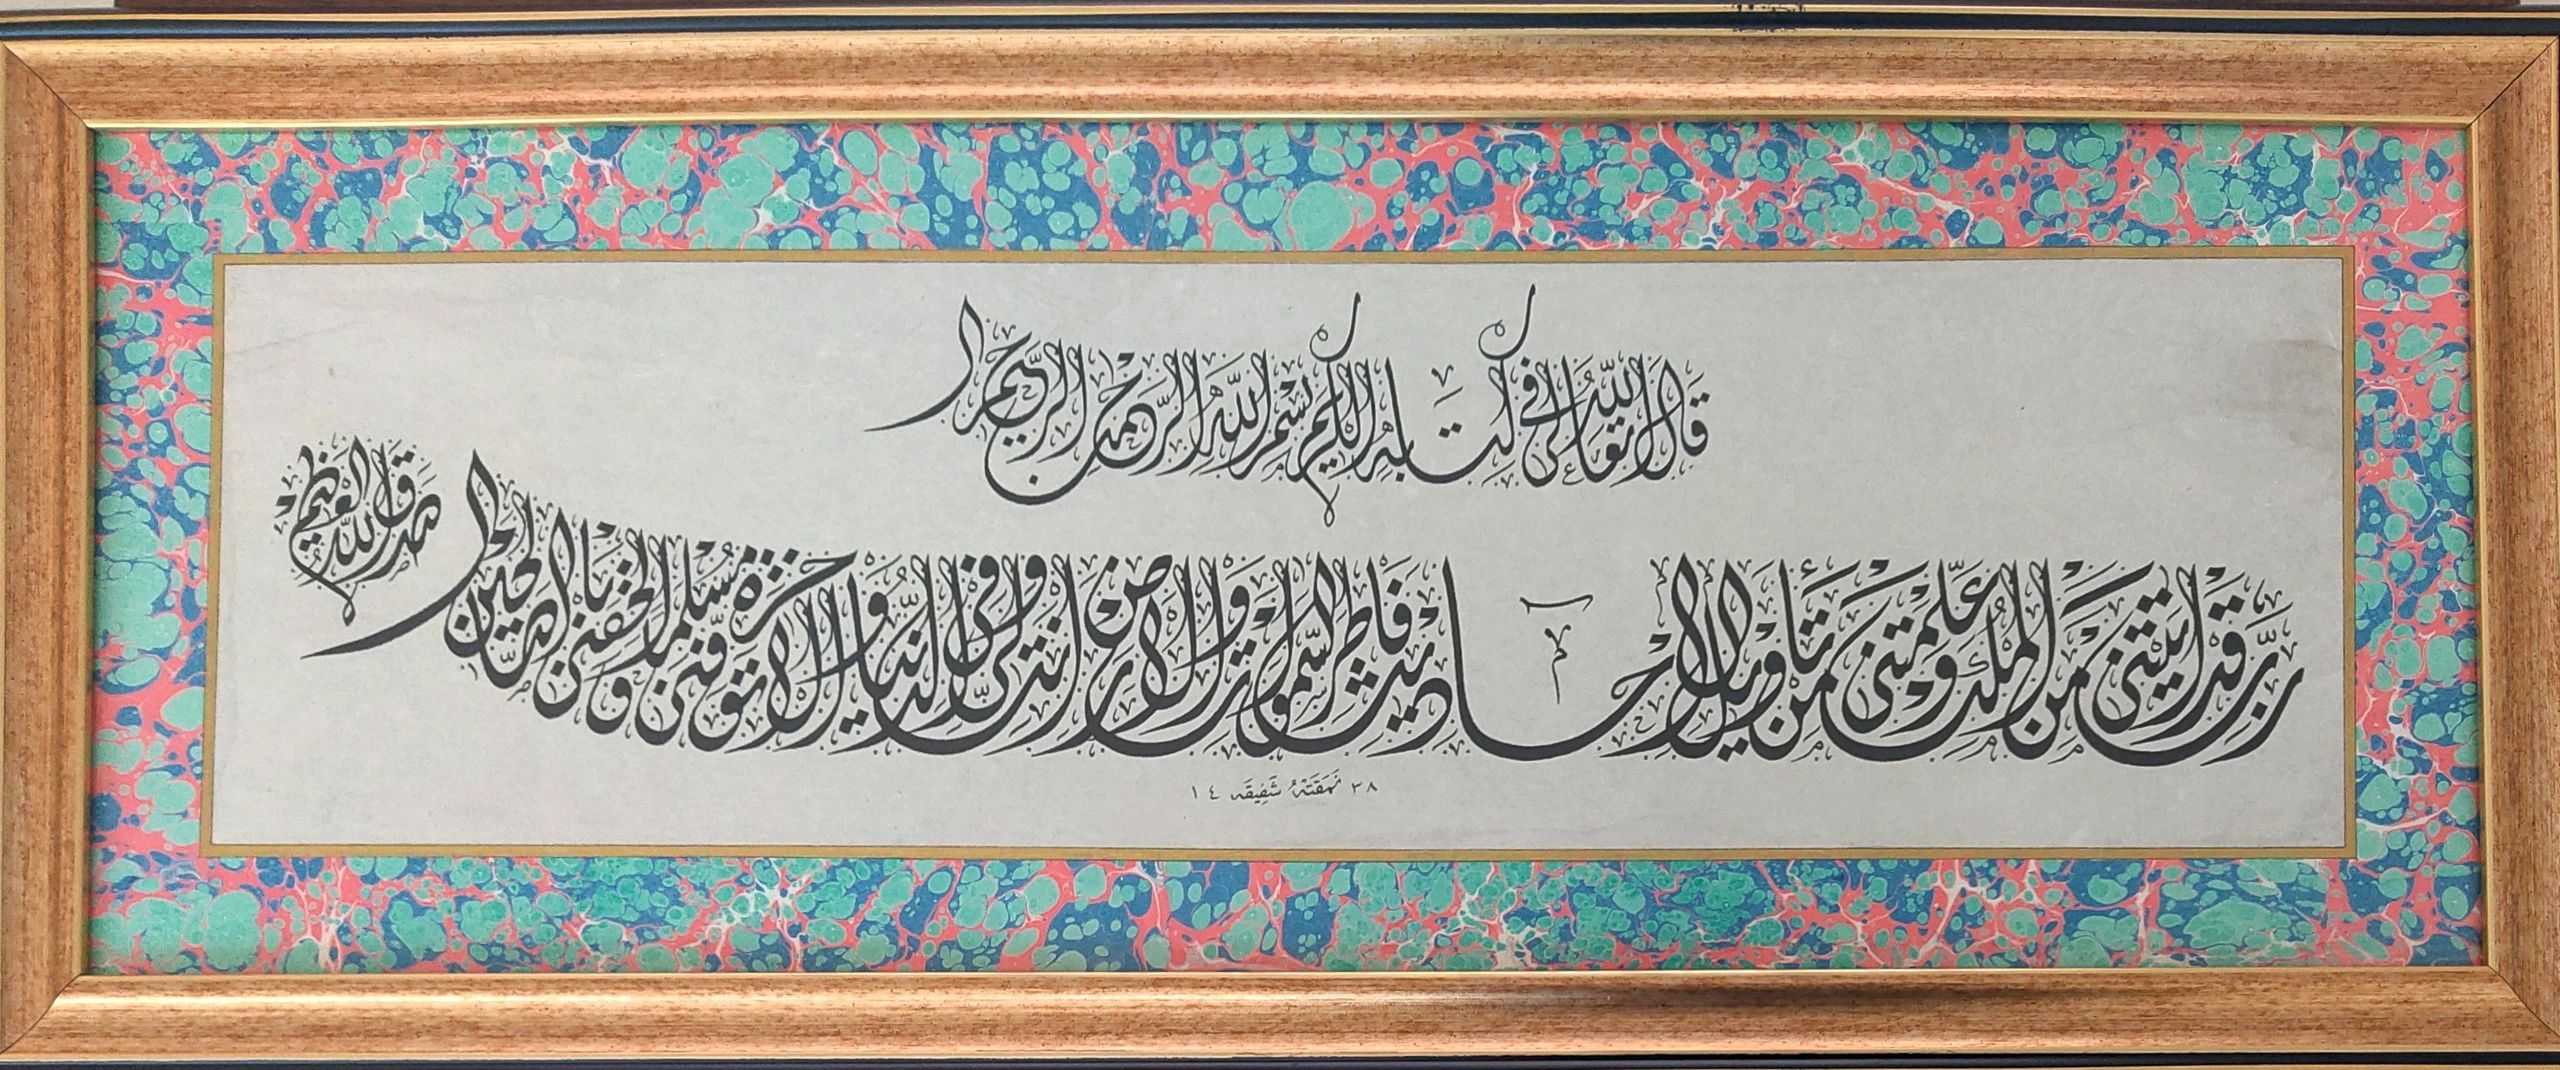 قال الله تعالى في كتابه الكريم بسم الله الرحمن الرحيم
رب قد اتيتنى من الملك وعلمتنى من تأويل الاحاديث فاطر السموات والارض انت ولى فى الدنيا والاخرة توفنى مسلما والحقنى بالصالحين
صدق الله العظيم
٣٨ نمقته شفيقه ١٤